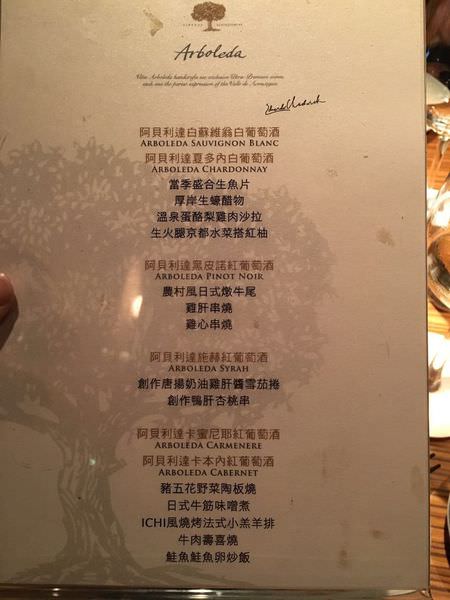 Arboleda
阿貝利達白蘇維翁白葡萄酒
ARBOLEDA SAUVIGNON BLANC
阿貝利達夏多內白葡萄酒
ARBOLEDA CHARDONNAY
當季盛合生魚片
厚岸生蠔醋物
溫泉蛋酪梨雞肉沙拉
生火腿京都水菜搭紅柚
阿貝利達黑皮諾紅葡萄酒
ARBOLEDA PINOT NOIR
農村風日式燉牛尾
雞肝串燒
雞心串燒
阿貝利達施赫紅葡萄酒
ARBOLEDA SYRAH
創作唐揚奶油雞肝醬雪茄捲
創作鴨肝杏桃串
阿貝利達卡蜜尼耶紅葡萄酒
ARBOLEDA CARMENERE
阿貝利達卡本內紅葡萄酒
ARBOLEDA CABERNET
豬五花野菜陶板燒
日式牛筋味噌煮
ICHI風燒烤法式小羔羊排
牛肉壽喜燒
鮭魚鮭魚卵炒飯